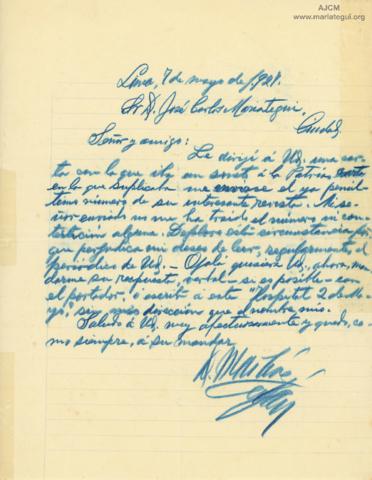 AJCM
www.mariategui.org
Lima, 7 de mayo de 1928.
Sr. D. José Carlos Mariategui,
Ciudad,
Señor y amigo:
Le dirijí á Ud. una car-
ta con la que iba un soneto á la Patria,
en la que suplicaba me enviase el ya penúl-
timo número de su interesante revista. Mi se-
ñor enviado no me ha traido el número ni con-
testación alguna. Deploro esta circunstancia, por
que perjudica mi deseo de leer, regularmente, el
periódico de Ud. - Ojalá quisiera Ud., ahora, man-
darme su respuesta, verbal - si es posible - con
el portador, o escrita á este Hospital 2 de Ma-
yo, sin más dirección que el nombre mío.
Saludo á Ud. muy afectuosamente y quedo, co-
mo siempre, á su mandar,